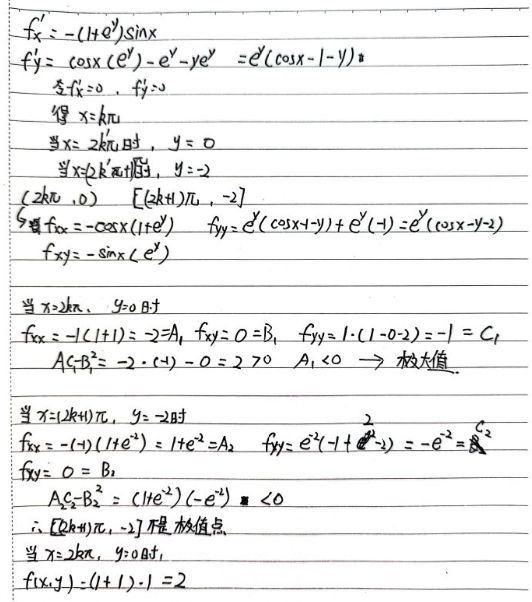 f'x = -(1+e^y)sinx
f'y = cosx(e^y)-e^y-ye^y = e^y(cosx-1-y)
令f'x=0, f'y=0
得 x=kπ
当x=2k'π时, y=0
当x=(2k'π+1)时, y=-2
(2kπ,0) [(2k+1)π,-2]
fxx=-cosx(1+e^y) fyy=e^y(cosx-1-y)+e^y(-1)=e^y(cosx-y-2)
fxy=-sinx(e^y)
当x=2kπ、y=0时
fxx=-1(1+1)=-2=A₁ fxy=0=B₁ fyy=1·(1-0-2)=-1=C₁
A₁C₁-B₁²=-2·(-1)-0=2>0 A₁<0 → 极大值
当x=(2k+1)π, y=-2时
fxx=-(-1)(1+e^-2)=1+e^-2=A₂ fyy=e^-2(-1+2-2)=-e^-2=C₂
fxy=0=B₂
A₂C₂-B₂²=(1+e^-2)(-e^-2)<0
∴[(2k+1)π,-2]不是极值点
当x=2kπ, y=0时,
f(x,y)=(1+1)·1=2